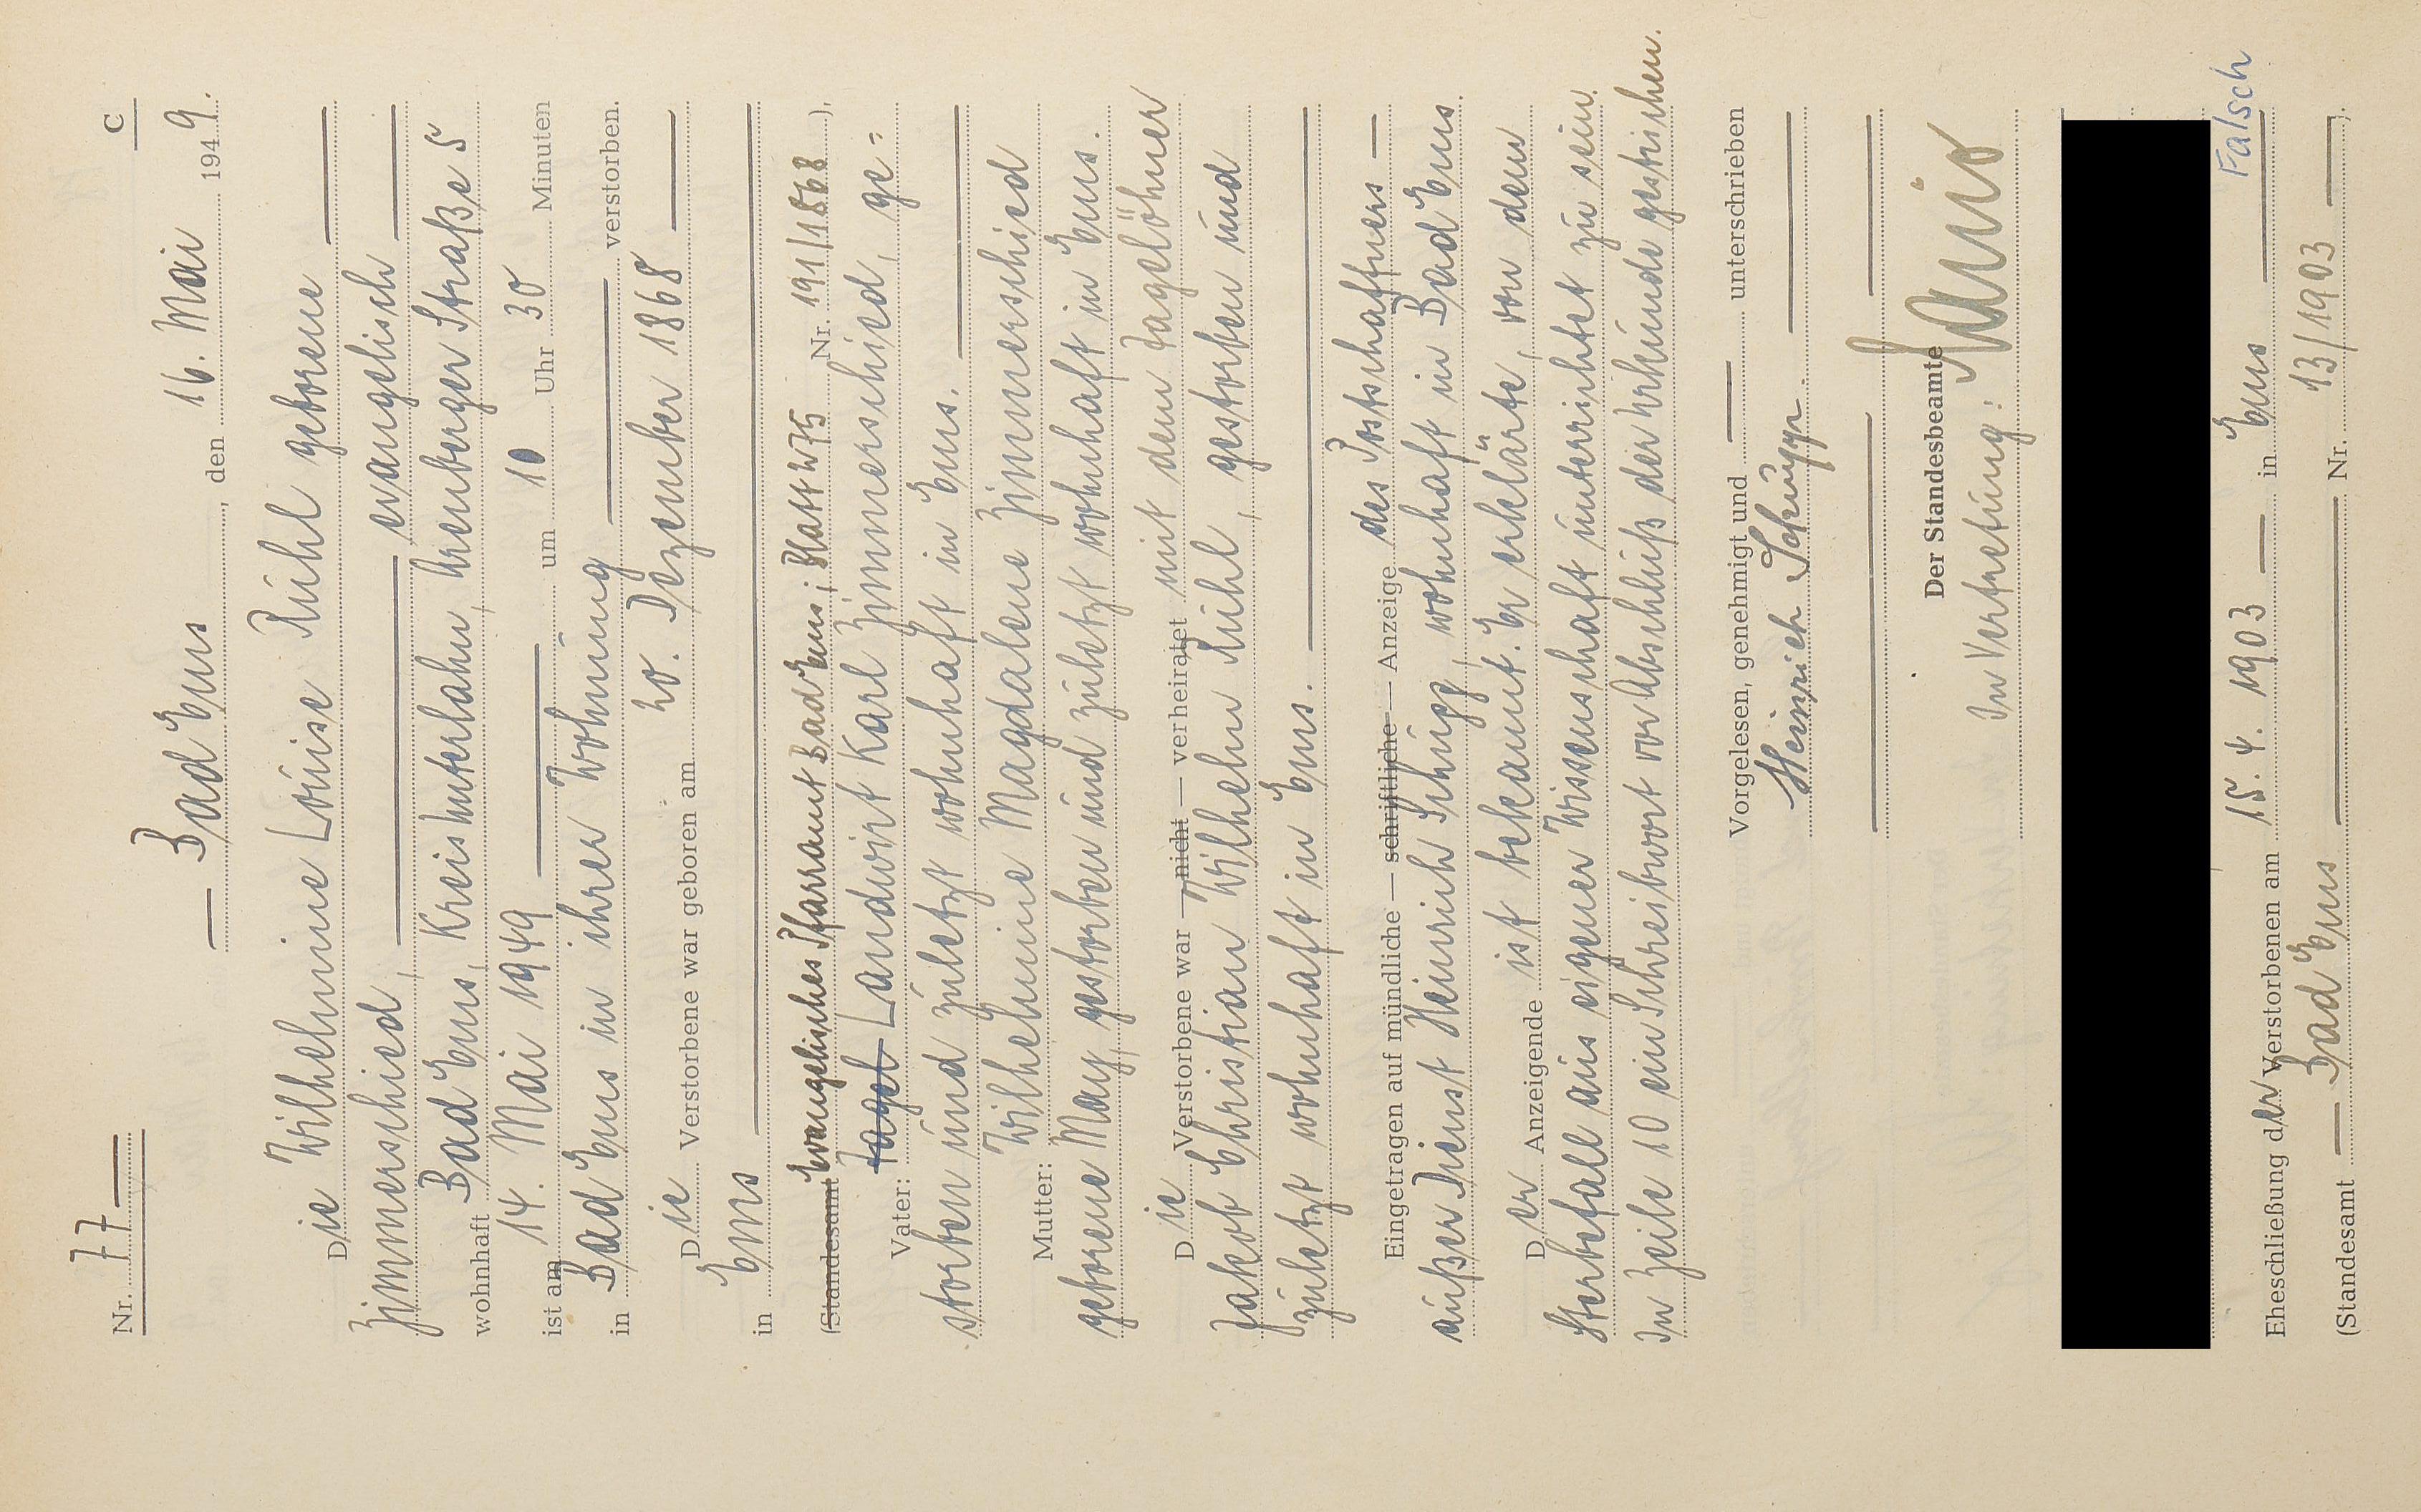 Nr. 77
C
Bad Ems, den 16. Mai 1949.
Die Wilhelmine Louise Rühl geborene
Zimmerschied, evangelisch
wohnhaft Bad Ems, Kreis Unterlahn, Arenberger Straße 5
ist am 14. Mai 1949 um 10 Uhr 30 Minuten
in Bad Ems in ihrer Wohnung verstorben.
Die Verstorbene war geboren am 20. Dezember 1868
in Ems
(Standesamt Evangelisches Pfarramt Bad Ems; Blatt 275 Nr. 191/1868).
Vater: Tagel Landwirt Karl Zimmerschied, ge=
storben und zuletzt wohnhaft in Ems.
Mutter: Wilhelmine Magdalene Zimmerschied
geborene May, gestorben und zuletzt wohnhaft in Ems.
Die Verstorbene war — nicht — verheiratet mit dem Tagelöhner
Jakob Christian Wilhelm Rühl, gestorben und
zuletzt wohnhaft in Ems.
Eingetragen auf mündliche — schriftliche — Anzeige des Postschaffners
außer Dienst Heinrich Schupp, wohnhaft in Bad Ems.
Der Anzeigende ist bekannt. Er erklärte, von dem
Sterbefall aus eigener Wissenschaft unterrichtet zu sein.
In Zeile 10 ein Schreibwort vor Abschluß der Urkunde gestrichen.
Vorgelesen, genehmigt und unterschrieben
Heinrich Schupp.
Der Standesbeamte
In Vertretung:
Eheschließung der Verstorbenen am 15. 4. 1903 in Ems Falsch
(Standesamt Bad Ems Nr. 13/1903).